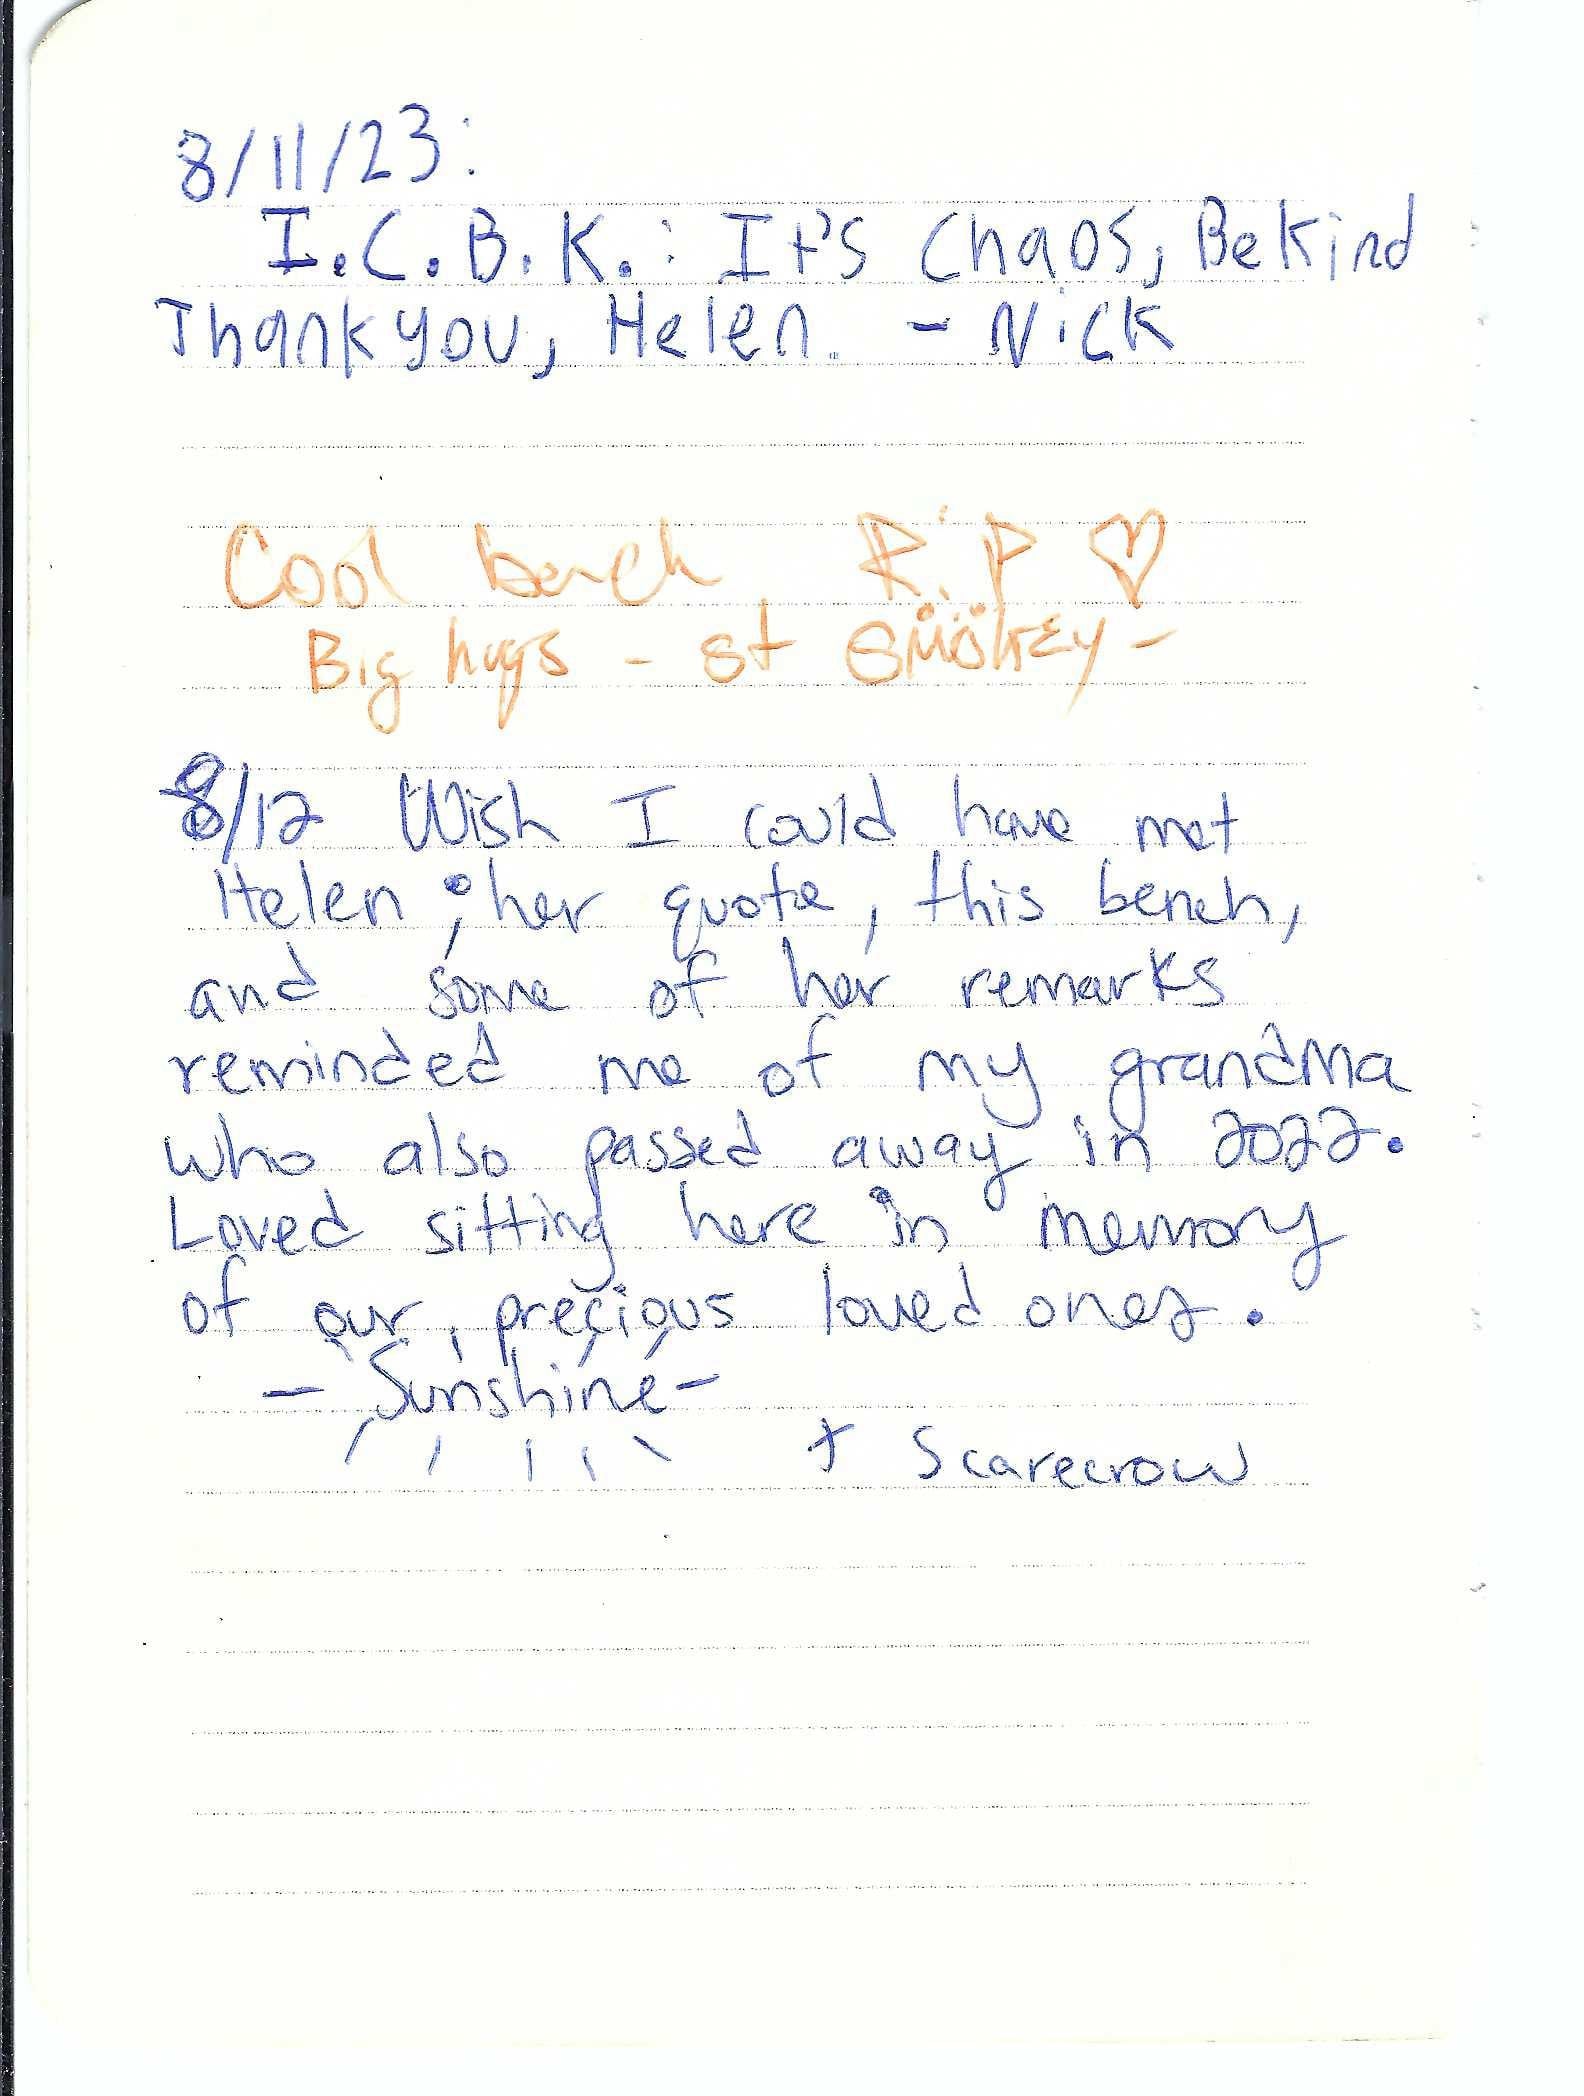 8/11/23:
I.C.B.K.: It's Chaos, Be Kind
Thank you, Helen. - Nick
Cool bench R.i.P ♡
Big hugs - St SMöKEy -
8/12 Wish I could have met
Helen; her quote, this bench,
and some of her remarks
reminded me of my grandma
who also passed away in 2022.
Loved sitting here in memory
of our precious loved ones.
- Sunshine -
+ Scarecrow